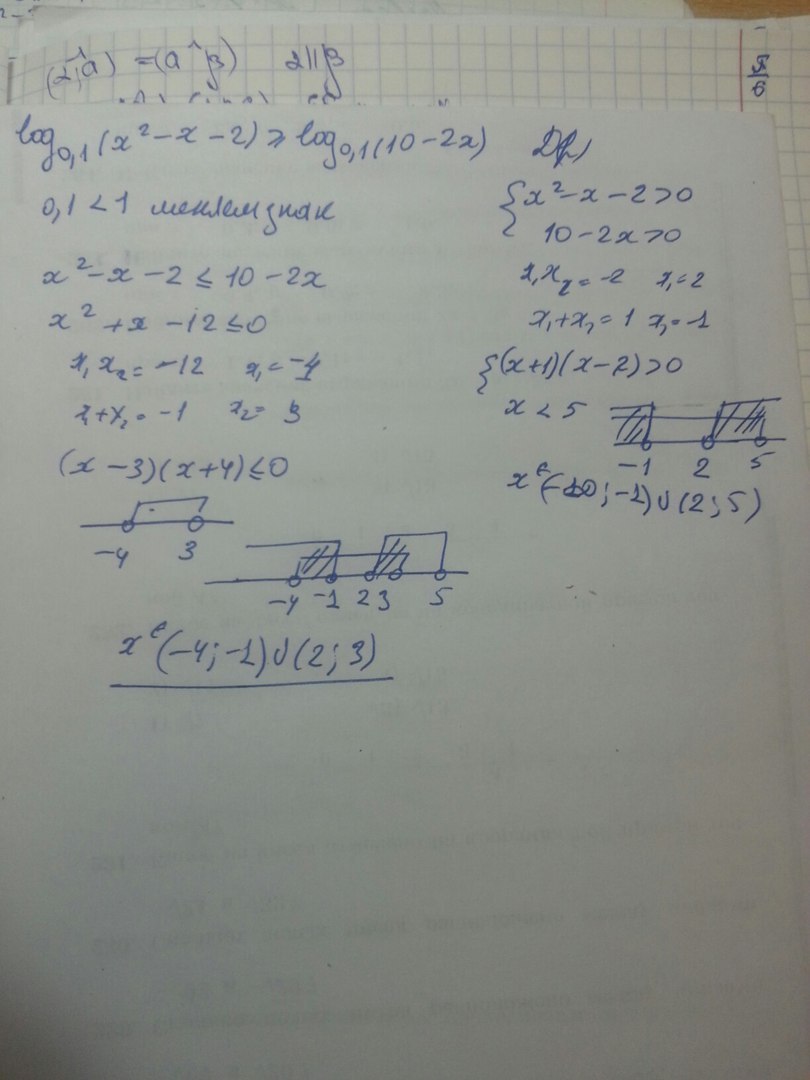 (2,^a) = (a ^ β) 2||β
π/6
log₀,₁(x² - x - 2) ⩾ log₀,₁(10 - 2x)
0,1 < 1 меняем знак
x² - x - 2 ≤ 10 - 2x
x² + x - 12 ≤ 0
x₁x₂ = -12 x₁ = -4
x₁ + x₂ = -1 x₂ = 3
(x - 3)(x + 4) ≤ 0
-4 3
-4 -1 2 3 5
x ∈ (-4; -1) ∪ (2; 3)
{x² - x - 2 > 0
10 - 2x > 0
x₁x₂ = -2 x₁ = 2
x₁ + x₂ = 1 x₂ = -1
{(x + 1)(x - 2) > 0
x < 5
-1 2 5
x ∈ (-∞; -1) ∪ (2; 5)